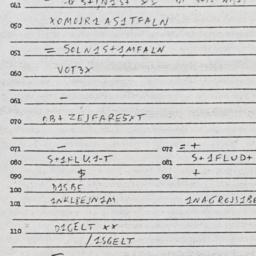 041
050 XOMOJR1 AS1TFALN
051 = SOLN1S+1MFALN
060 VOT3X
061 -
070 OB+ ZEJFARE5XT
071 - 072 = +
080 S+1FLU1-T 081 S+1FLUD+
090 $ 091 +
100 D1SBE
101 1NKLBEJN1M 1NAGROJS1BE
110 D1GELT XX
/1SGELT